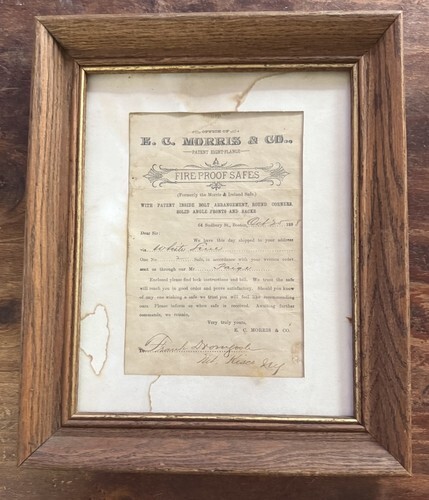 OFFICE OF
E. C. MORRIS & CO.,
PATENT EIGHT-FLANGE
FIRE PROOF SAFES
(Formerly the Morris & Ireland Safe.)
WITH PATENT INSIDE BOLT ARRANGEMENT, ROUND CORNERS,
SOLID ANGLE FRONTS AND BACKS
64 Sudbury St., Boston, Oct 25 188
Dear Sir:
We have this day shipped to your address
via White Line
One No. 2 Safe in accordance with your written order
sent us through our Mr. Paige
Enclosed please find lock instructions and bill. We trust the safe
will reach you in good order and prove satisfactory. Should you know
of any one wishing a safe we trust you will feel like recommending
ours. Please inform us when safe is received. Awaiting further
commands, we remain,
Very truly yours,
E. C. MORRIS & CO.
To Frank